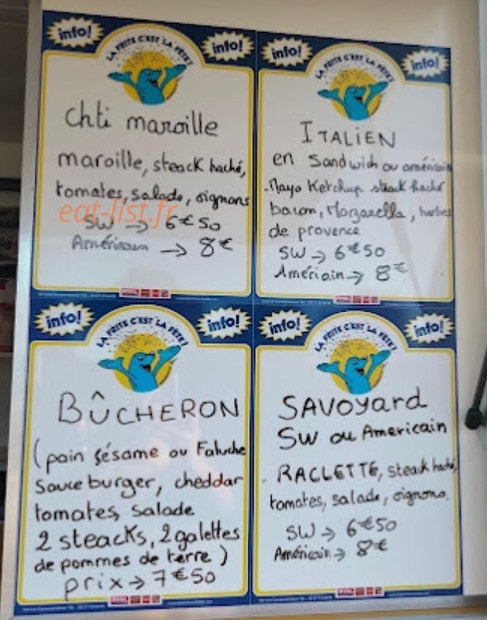 info!
LA FRITE C'EST LA FÊTE!
info!
Chti maroille
maroille, steack haché,
tomates, salade, oignons
eat-list.fr
SW → 6€50
Américain → 8€
info!
LA FRITE C'EST LA FÊTE!
info!
ITALIEN
en Sandwich ou américain
- Mayo Ketchup steack haché
bacon, Mozzarella, herbes
de provence
SW → 6€50
Américain → 8€
info!
LA FRITE C'EST LA FÊTE!
info!
BÛCHERON
(pain sésame ou Faluche
sauce burger, cheddar
tomates, salade
2 steacks, 2 galettes
de pommes de terre)
prix → 7€50
info!
LA FRITE C'EST LA FÊTE!
info!
SAVOYARD
SW ou Americain
- RACLETTE, steack haché,
tomates, salade, oignons.
SW → 6€50
Américain → 8€